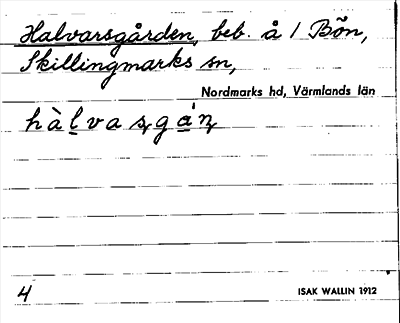 Halvarsgården, beb. å 1 Bön,
Skillingmarks sn,
Nordmarks hd, Värmlands län
hàl̠vaʂga̠ɳ
4
ISAK WALLIN 1912